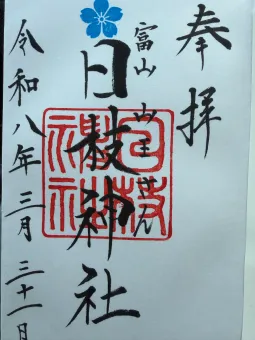 奉拝
富山 山王さん
日枝神社
日枝神社
令和八年三月三十一日